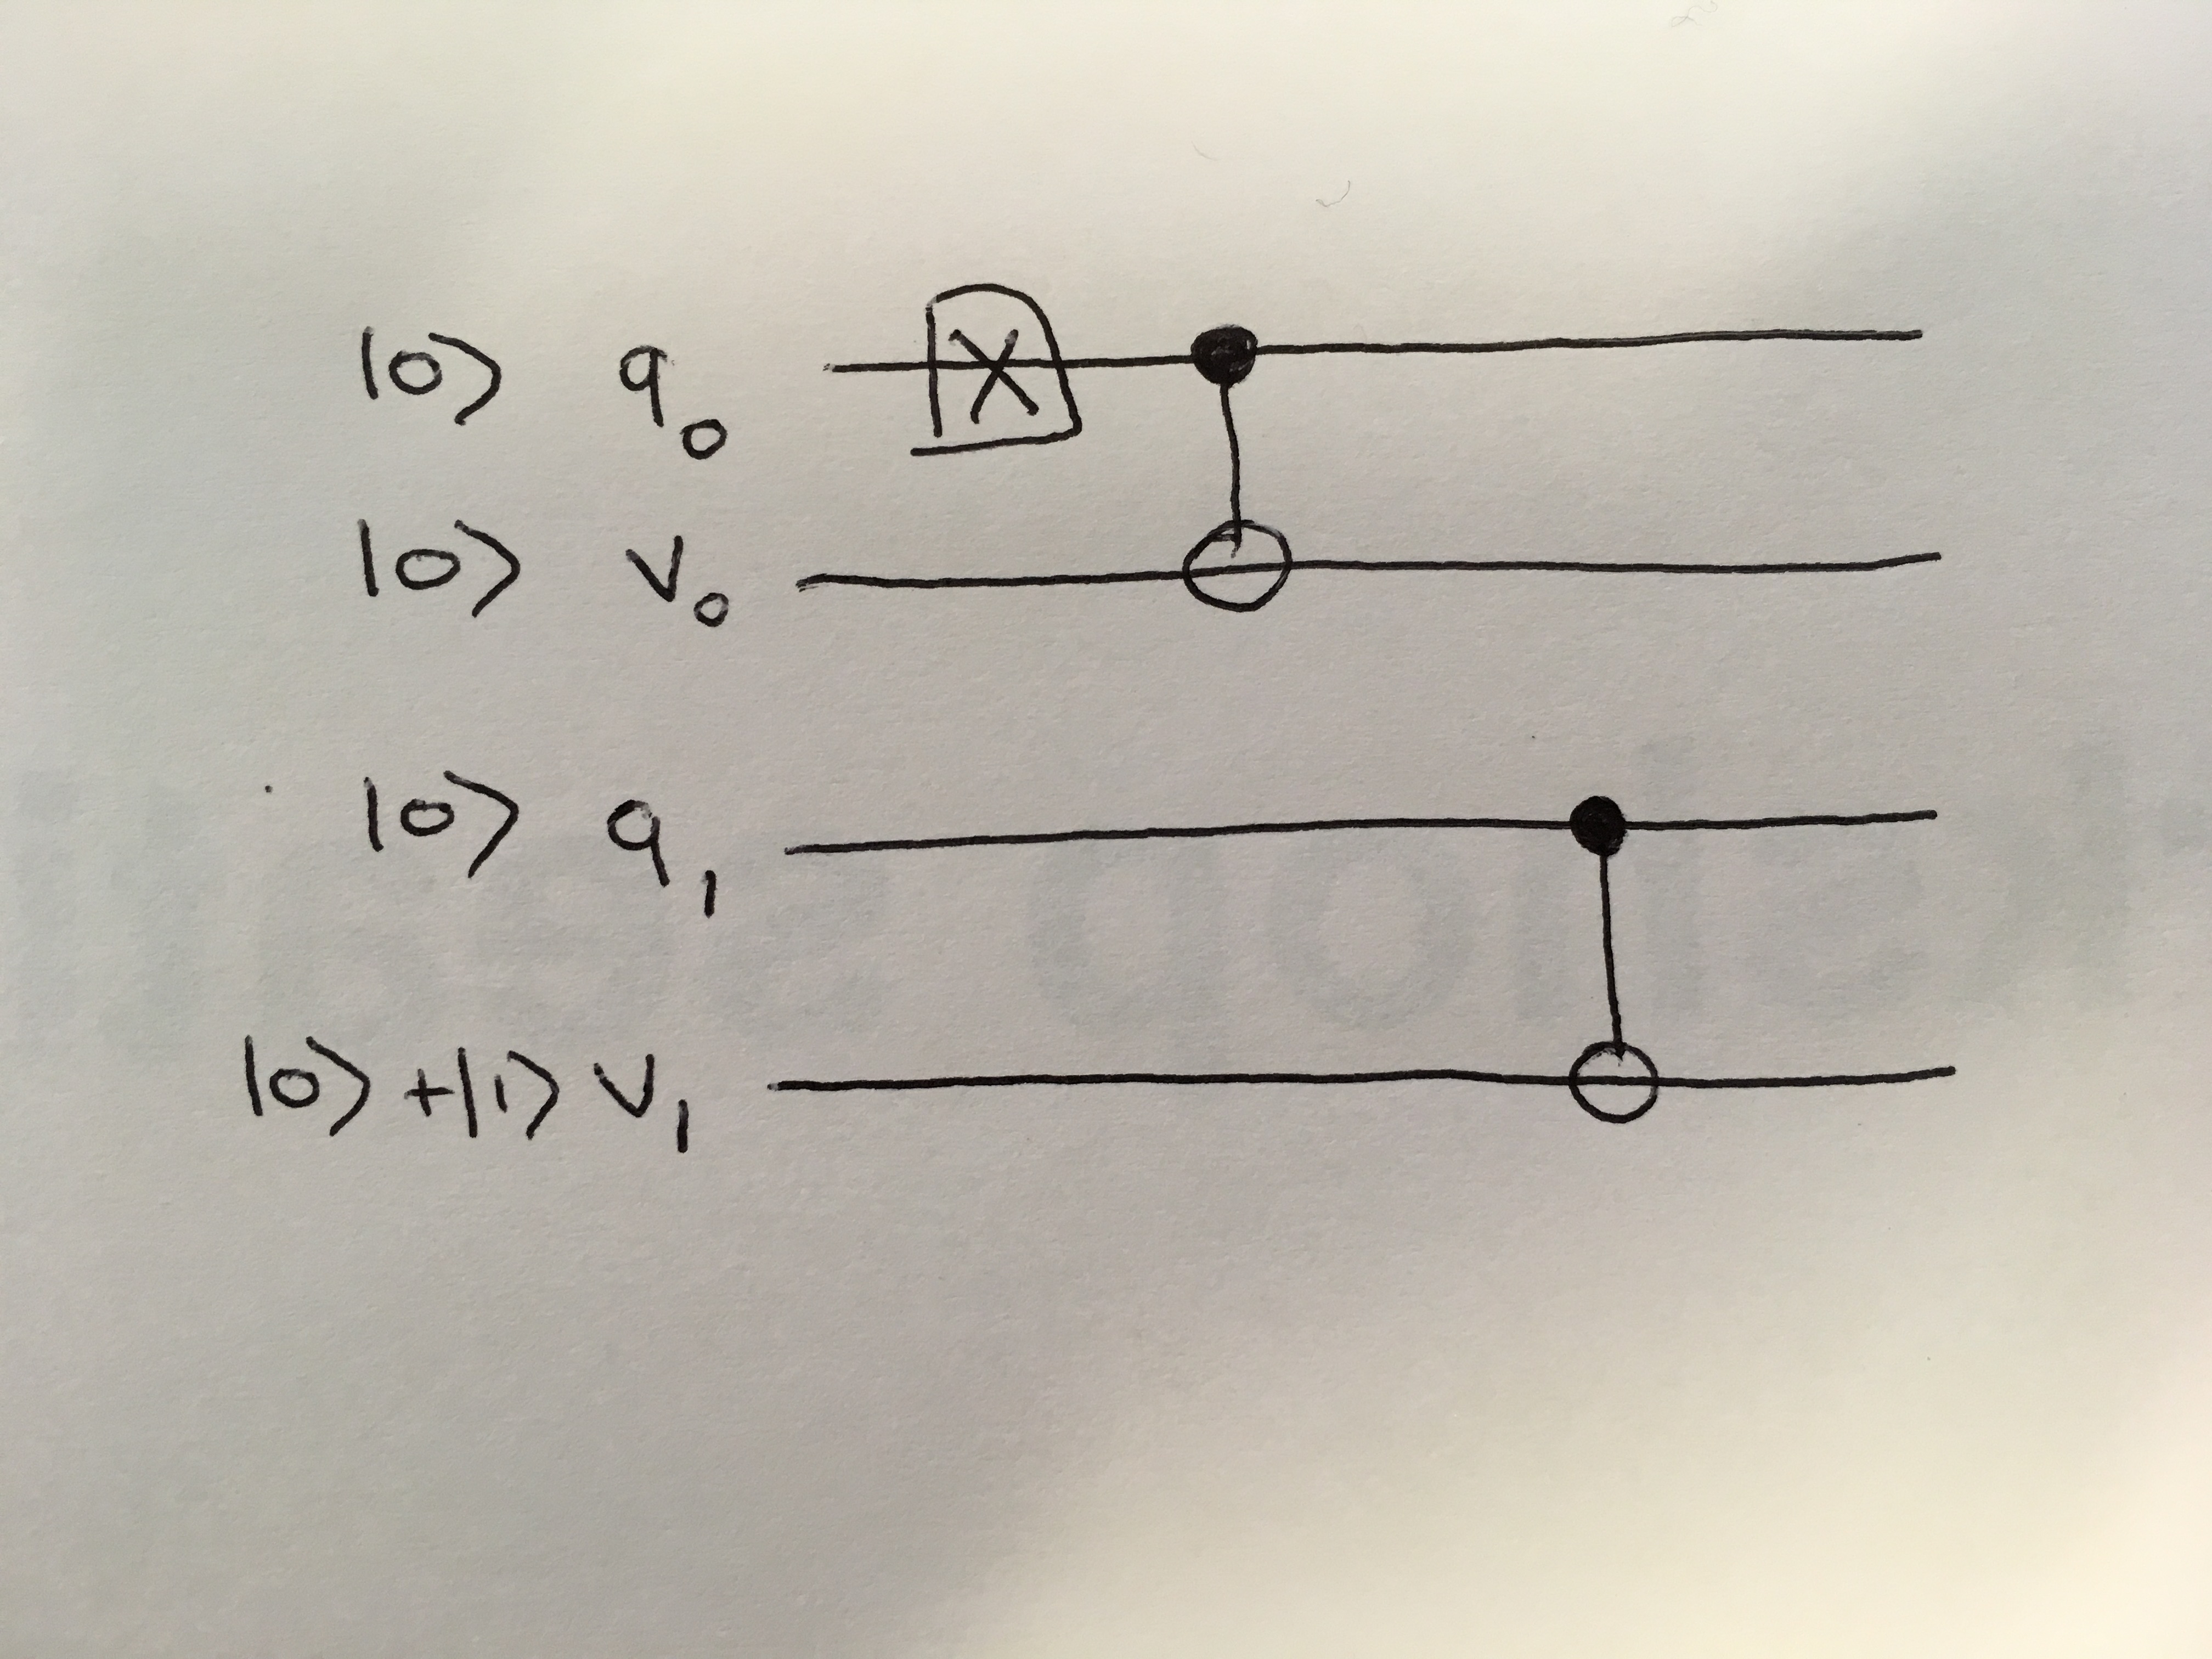 |0⟩ q₀ X
|0⟩ v₀
|0⟩ q₁
|0⟩+|1⟩ v₁